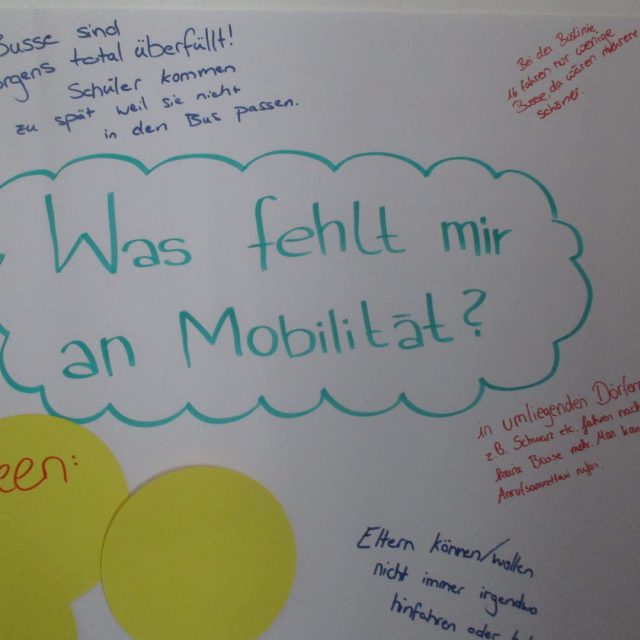 Busse sind
morgens total überfüllt!
Schüler kommen
zu spät weil sie nicht
in den Bus passen.
Bei der Buslinie
16 fahren nur wenige
Busse da wären mehrere
schöner.
Was fehlt mir
an Mobilität?
een:
in umliegenden Dörfern
z.B. Schwarz etc. fahren nachts
keine Busse mehr. Man kann
Anrufsammeltaxi rufen.
Eltern können/wollen
nicht immer irgendwo
hinfahren oder